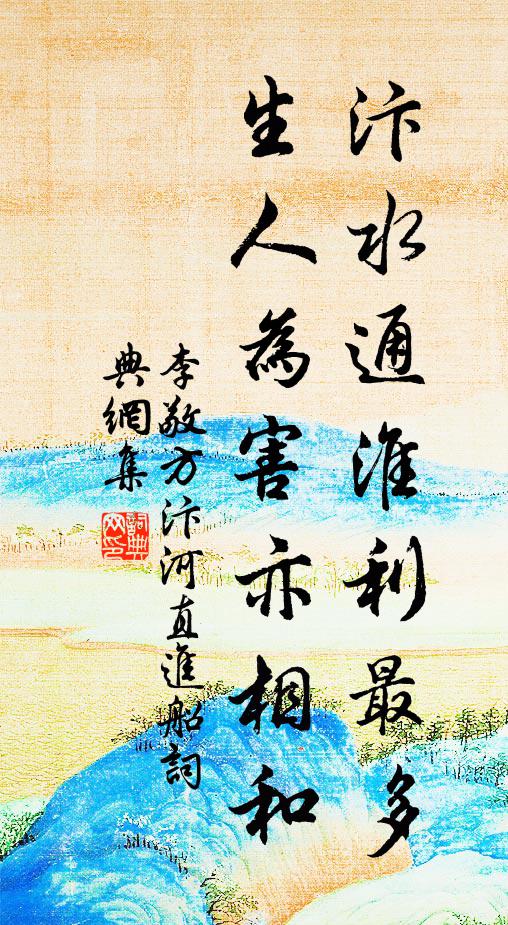 汴水通淮利最多
生人為害亦相和
李敬方汴河直進船詞
典網集
詞典網印